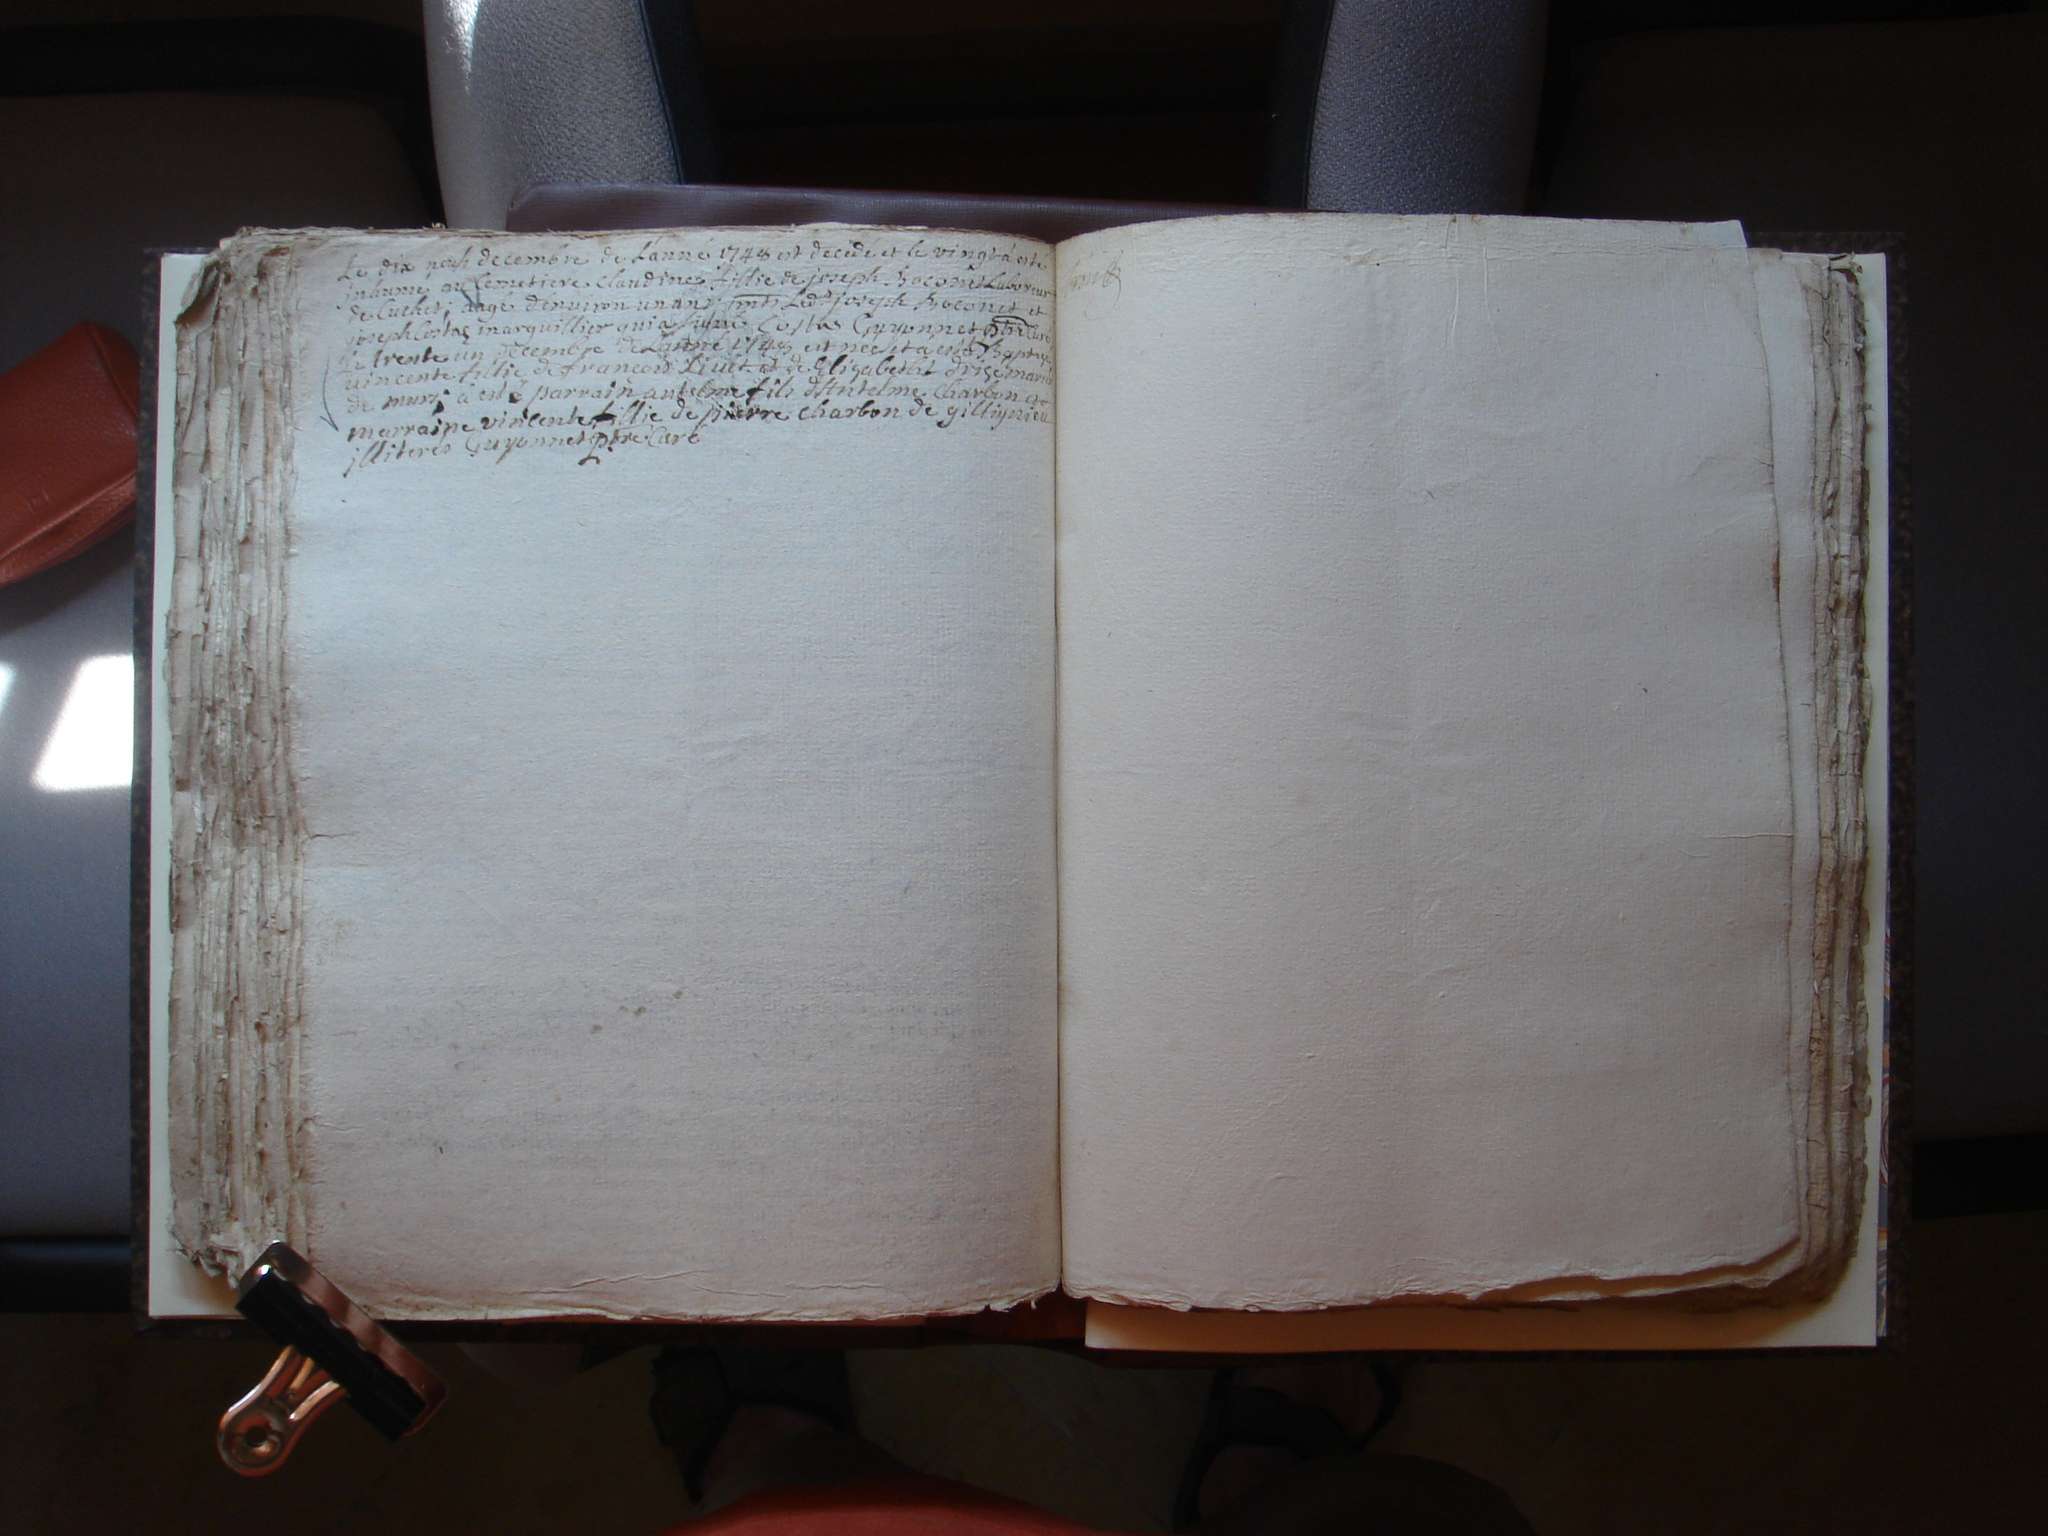 Le dix neuf decembre de Lanné 1748 est decede et le vingt à esté
inhumé au Cemetiere Claudine fillie de joseph Boconet Laboreur
de Cuchet, aagé d'environ un an, pnts Led. joseph Boconet et
joseph Costaz marguillier qui a signé Costaz Guyonnet ptre Curé
Le trente un decembre de Lanné 1748 est neé et à esté Baptisé
vincente fillie de francois et de Elizabeth mariés
de murs, à esté parrain antelme fils d'Antelme Charbon et
marraine vincente fillie de pierre Charbon de gillignieu
illiteres Guyonnet ptre Curé